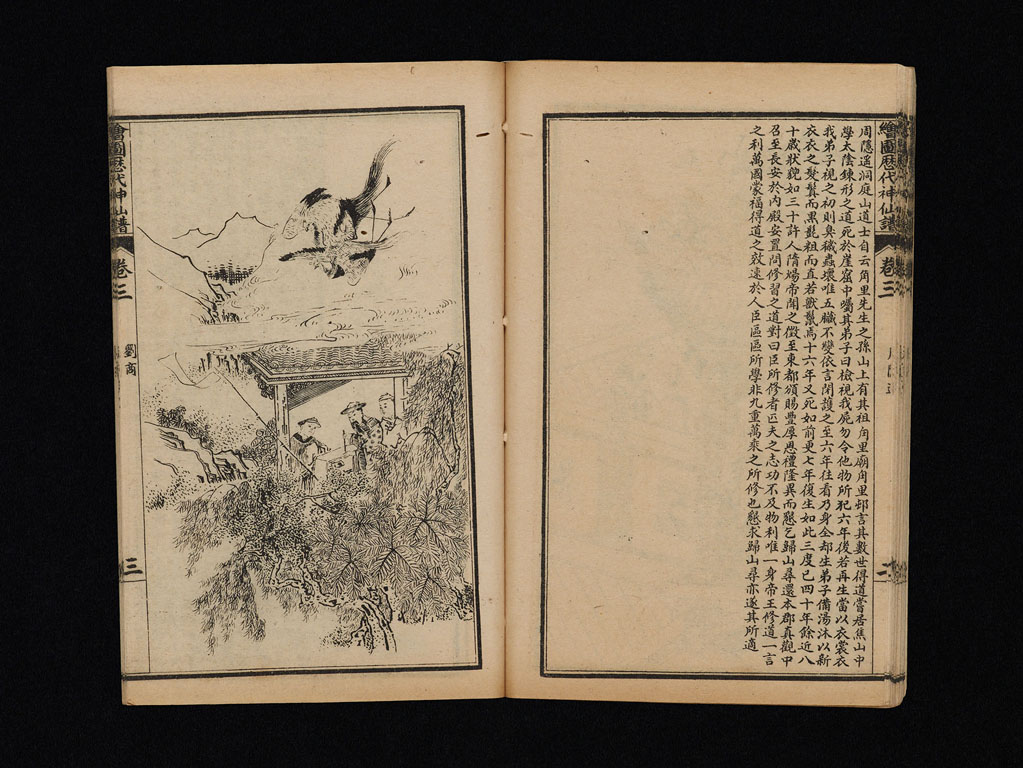 繪圖歷代神仙譜
卷三
二
周隱遥洞庭山道士自云角里先生之孫山上有其祖角里廟角里邨言其數世得道嘗居焦山中
學太陰鍊形之道死於崖窟中囑其弟子曰檢視我屍勿令他物所犯六年後若再生當以衣裳衣
我弟子視之初則臭穢蟲壞唯五臟不變依言閉護之至六年往看乃身全却生弟子備湯沐以新
衣衣之髮鬒而黑髭粗而直若獸鬣焉十六年又死如前更七年復生如此三度已四十年餘近八
十歲狀貌如三十許人隋煬帝聞之徵至東都頒賜豐厚恩禮隆異而懇乞歸山尋還本郡真觀中
召至長安於內殿安置問修習之道對曰臣所修者匹夫之志功不及物利唯一身帝王修道一言
之利萬國蒙福得道之效速於人臣區區所學非九重萬乘之所修也懇求歸山尋亦遂其所適
繪圖歷代神仙譜
卷三
劉商
三